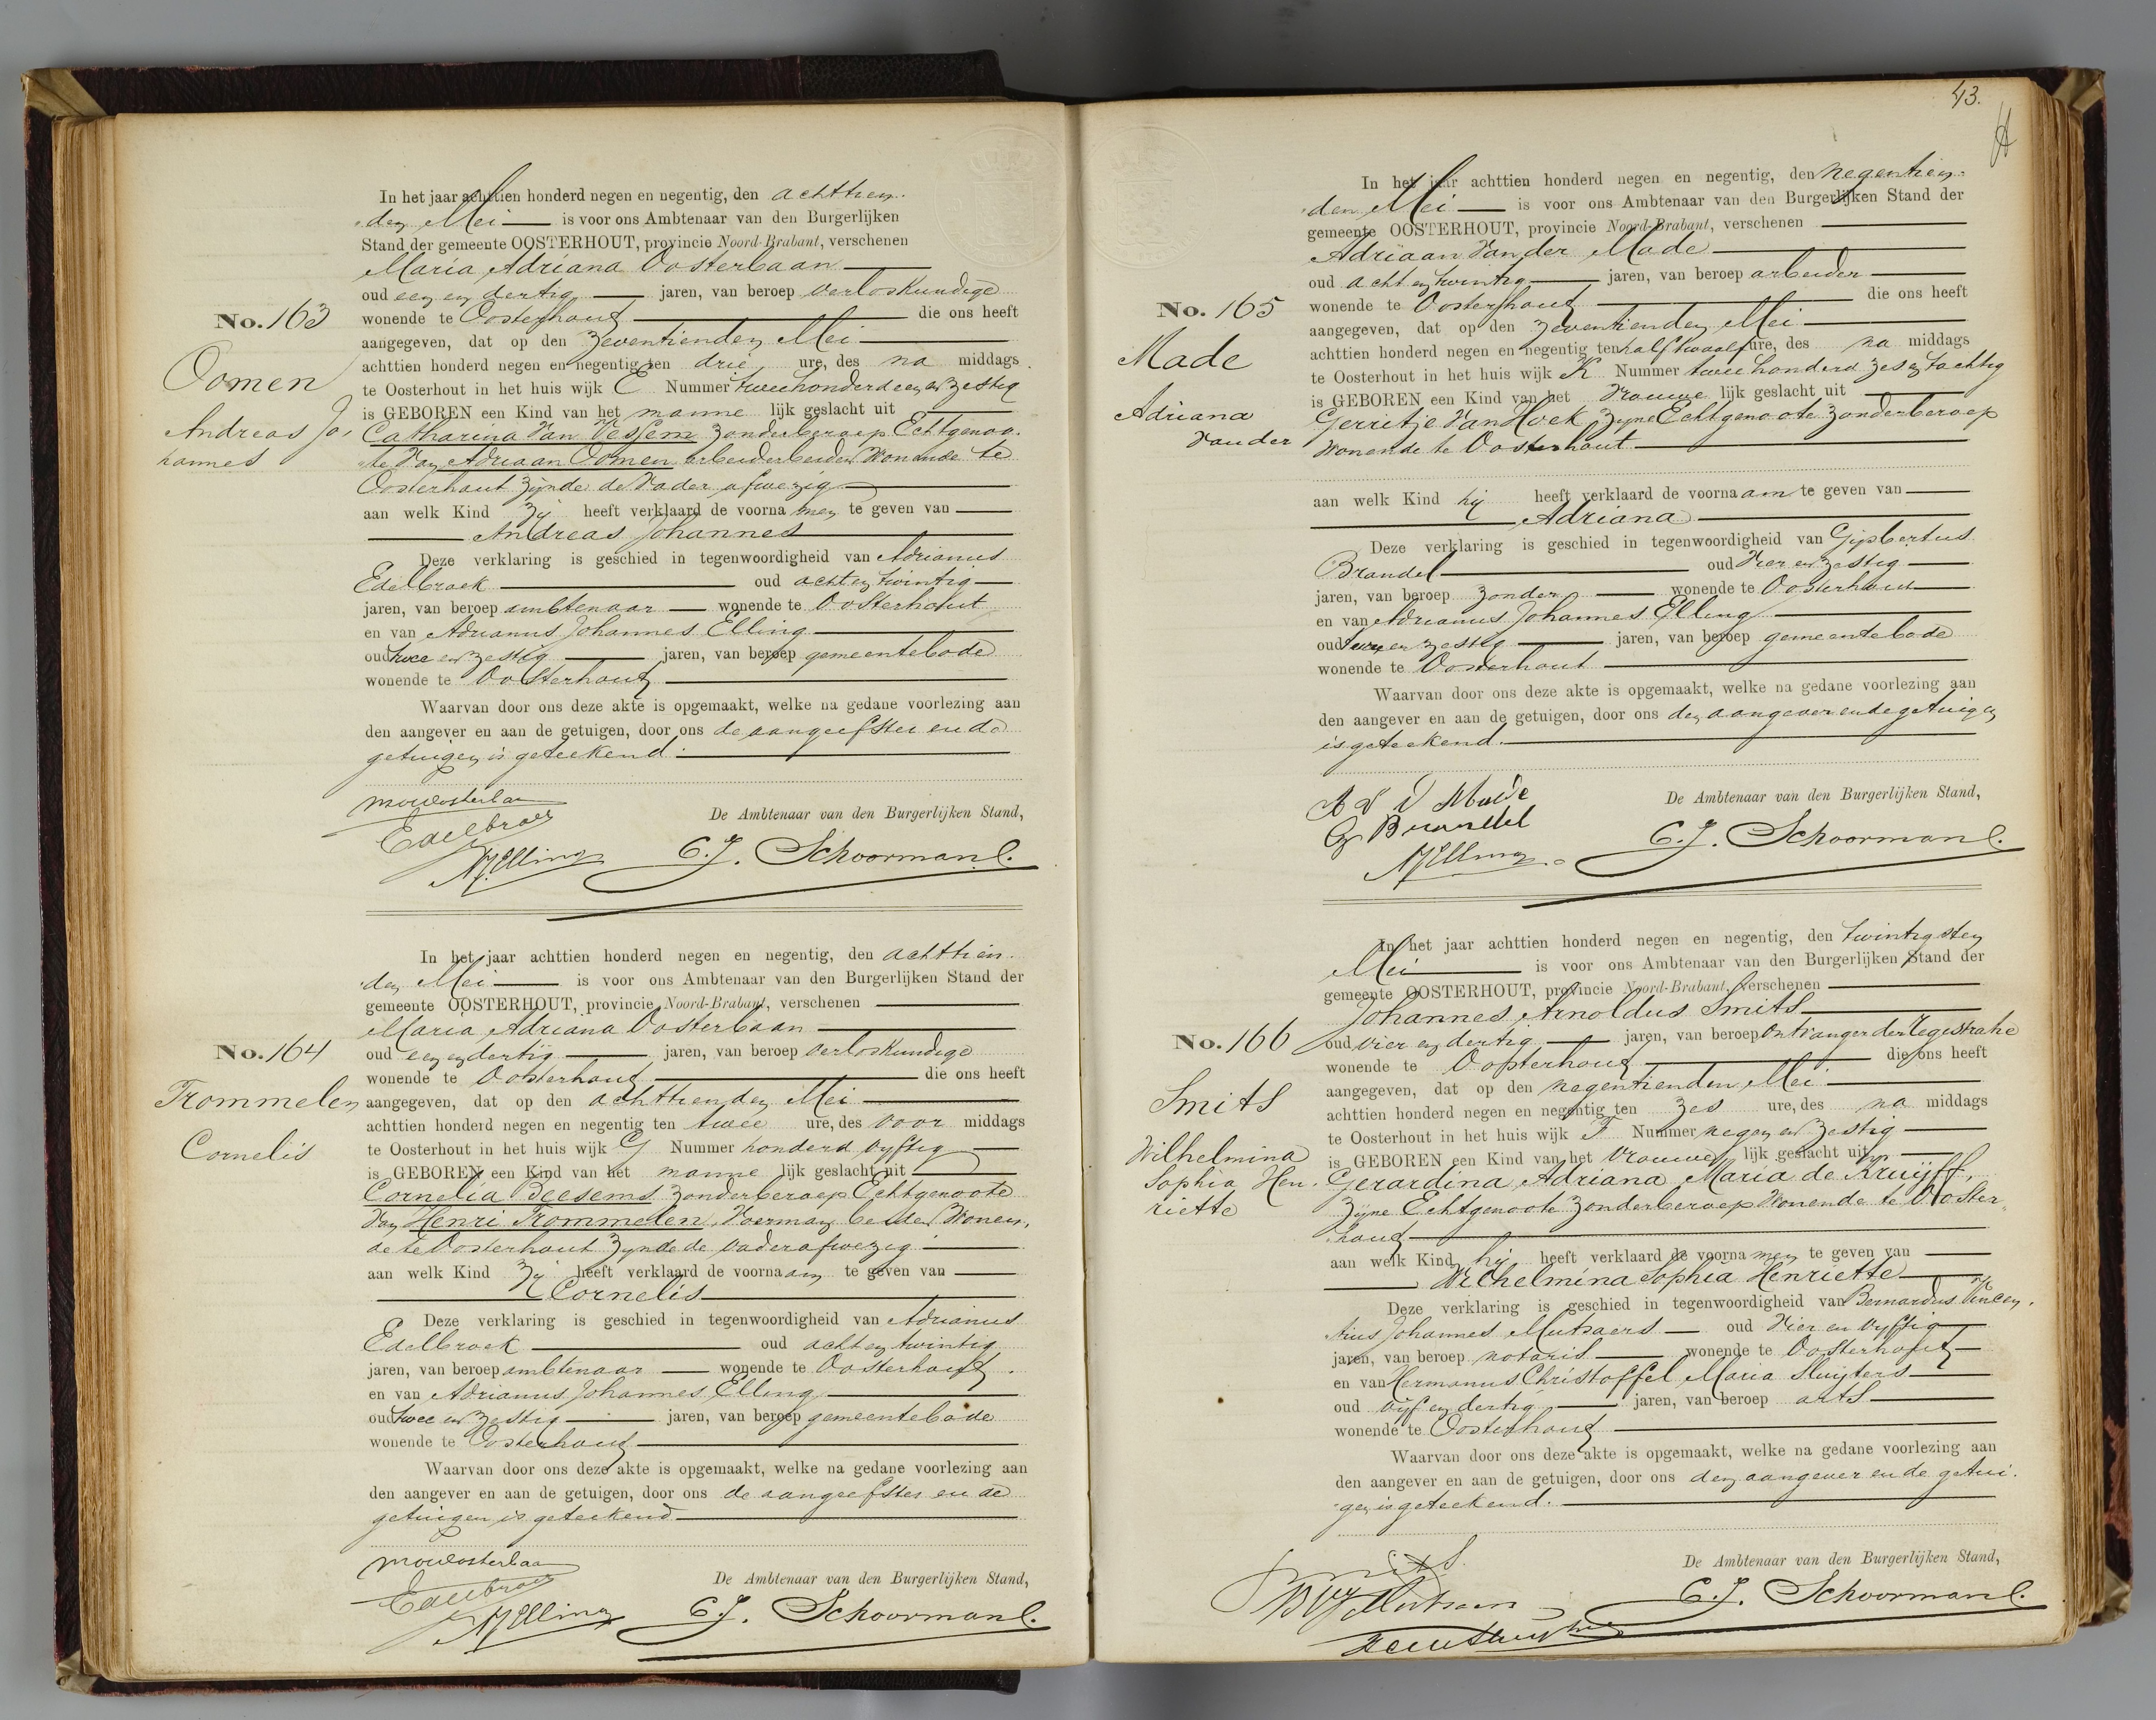 In het jaar achttien honderd negen en negentig, den achttien
den Mei is voor ons Ambtenaar van den Burgerlijken
Stand der gemeente OOSTERHOUT, provincie Noord-Brabant, verschenen
Maria Adriana Oosterbaan
oud een en dertig jaren, van beroep verloskundige
No. 163 wonende te Oosterhout die ons heeft
aangegeven, dat op den zeventienden Mei
Oomen achttien honderd negen en negentig ten drie ure, des na middags
te Oosterhout in het huis wijk E Nummer twee honderd een en zestig
is GEBOREN een Kind van het manne lijk geslacht uit
Andreas Jo, Catharina van Vessem zonder beroep Echtgenoo-
hannes te van Adriaan Oomen arbeider beiden wonende te
Oosterhout zijnde de vader afwezig
aan welk Kind zij heeft verklaard de voorna men te geven van
Andreas Johannes
Deze verklaring is geschied in tegenwoordigheid van Adrianus
Edelbroek oud acht en twintig
jaren, van beroep ambtenaar wonende te Oosterhout
en van Adrianus Johannes Elling
oud twee en zestig jaren, van beroep gemeentebode
wonende te Oosterhout
Waarvan door ons deze akte is opgemaakt, welke na gedane voorlezing aan
den aangever en aan de getuigen, door ons de aangeefster en de
getuigen is geteekend.
De Ambtenaar van den Burgerlijken Stand,
MAOosterbaan
Edelbroek
AJElling C. J. Schoorman l.
In het jaar achttien honderd negen en negentig, den achttien
den Mei is voor ons Ambtenaar van den Burgerlijken Stand der
gemeente OOSTERHOUT, provincie Noord-Brabant, verschenen
Maria Adriana Oosterbaan
No. 164 oud een en dertig jaren, van beroep verloskundige
wonende te Oosterhout die ons heeft
Trommelen aangegeven, dat op den achttienden Mei
achttien honderd negen en negentig ten twee ure, des voor middags
Cornelis te Oosterhout in het huis wijk G Nummer honderd vyftig
is GEBOREN een Kind van het manne lijk geslacht uit
Cornelia Beesems zonder beroep Echtgenoote
van Henri Trommelen, Voerman beiden wonen,
de te Oosterhout zynde de vader afwezig
aan welk Kind zij heeft verklaard de voorna am te geven van
Cornelis
Deze verklaring is geschied in tegenwoordigheid van Adrianus
Edelbroek oud acht en twintig
jaren, van beroep ambtenaar wonende te Oosterhout
en van Adrianus Johannes Elling
oud twee en zestig jaren, van beroep gemeentebode
wonende te Oosterhout
Waarvan door ons deze akte is opgemaakt, welke na gedane voorlezing aan
den aangever en aan de getuigen, door ons de aangeefster en de
getuigen is geteekend
De Ambtenaar van den Burgerlijken Stand,
MAOosterbaan
Edelbroek
AJElling C. J. Schoorman l.
43.
In het jaar achttien honderd negen en negentig, den negentien-
den Mei is voor ons Ambtenaar van den Burgerlijken Stand der
gemeente OOSTERHOUT, provincie Noord-Brabant, verschenen
Adriaan van der Made
oud acht en twintig jaren, van beroep arbeider
No. 165 wonende te Oosterhout die ons heeft
aangegeven, dat op den zeventienden Mei
Made achttien honderd negen en negentig ten half twaalf ure, des na middags
te Oosterhout in het huis wijk K Nummer twee honderd zes en tachtig
Adriana is GEBOREN een Kind van het vrouwe lijk geslacht uit
van der Gerritje van Hoek zyne Echtgenoote zonder beroep
wonende te Oosterhout
aan welk Kind hij heeft verklaard de voorna am te geven van
Adriana
Deze verklaring is geschied in tegenwoordigheid van Gijsbertus
Brandel oud vier en zestig
jaren, van beroep zonder wonende te Oosterhout
en van Adrianus Johannes Elling
oud twee en zestig jaren, van beroep gemeentebode
wonende te Oosterhout
Waarvan door ons deze akte is opgemaakt, welke na gedane voorlezing aan
den aangever en aan de getuigen, door ons den aangever en de getuigen
is geteekend.
De Ambtenaar van den Burgerlijken Stand,
A V d Made
G Brandel
AJElling C. J. Schoorman l.
In het jaar achttien honderd negen en negentig, den twintigsten
Mei is voor ons Ambtenaar van den Burgerlijken Stand der
gemeente OOSTERHOUT, provincie Noord-Brabant, verschenen
Johannes Arnoldus Smits
No. 166 oud vier en dertig jaren, van beroep ontvanger der registratie
wonende te Oosterhout die ons heeft
aangegeven, dat op den negentienden Mei
Smits achttien honderd negen en negentig ten zes ure, des na middags
te Oosterhout in het huis wijk F Nummer negen en zestig
Wilhelmina is GEBOREN een Kind van het vrouwe lijk geslacht uit
Sophia Hen- Gerardina Adriana Maria de Kruijff,
riette zijne Echtgenoote zonder beroep wonende te Ooster
hout
aan welk Kind hij heeft verklaard de voorna men te geven van
Wilhelmina Sophia Henriette
Deze verklaring is geschied in tegenwoordigheid van Bernardus Vincen-
tius Johannes Mutsaers oud vier en vyftig
jaren, van beroep notaris wonende te Oosterhout
en van Hermanus Christoffel Maria Sluijters
oud vijf en dertig jaren, van beroep arts
wonende te Oosterhout
Waarvan door ons deze akte is opgemaakt, welke na gedane voorlezing aan
den aangever en aan de getuigen, door ons den aangever en de getui-
gen is geteekend.
De Ambtenaar van den Burgerlijken Stand,
Smits
BVJMutsaers C. J. Schoorman l.